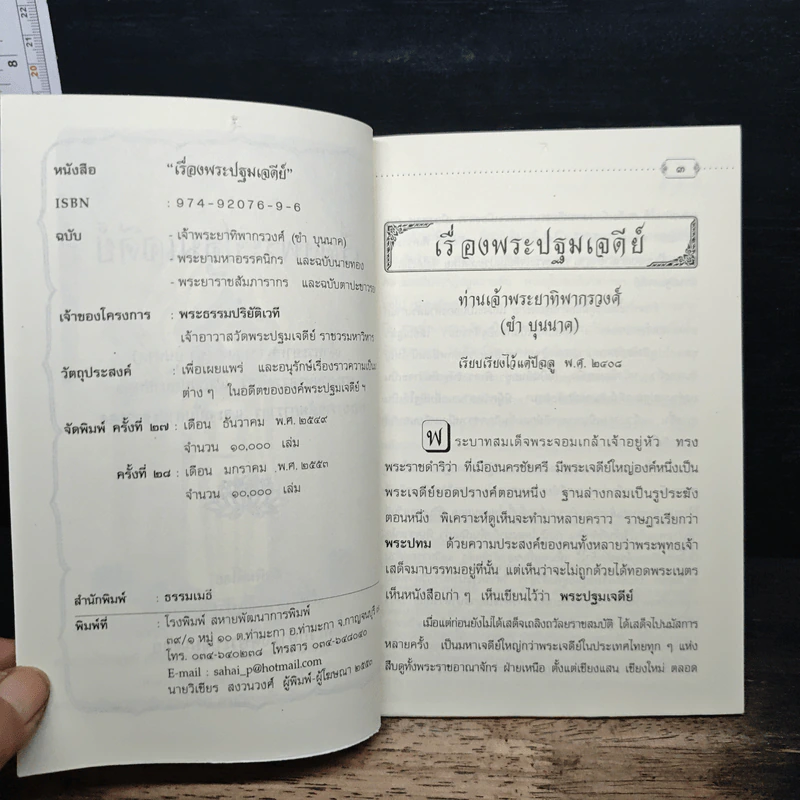 หนังสือ "เรื่องพระปฐมเจดีย์"
ISBN : 974-92076-9-6
ฉบับ - เจ้าพระยาทิพากรวงศ์ (ขำ บุนนาค)
- พระยามหาอรรคนิกร และฉบับนายทอง
- พระยาราชสัมภารากร และฉบับตาปะขาวรอด
เจ้าของโครงการ : พระธรรมปริยัติเวที
เจ้าอาวาสวัดพระปฐมเจดีย์ ราชวรมหาวิหาร
วัตถุประสงค์ : เพื่อเผยแพร่ และอนุรักษ์เรื่องราวความเป็นมา
ต่าง ๆ ในอดีตขององค์พระปฐมเจดีย์ ฯ
จัดพิมพ์ ครั้งที่ ๒๗ : เดือน ธันวาคม พ.ศ. ๒๕๔๙
จำนวน ๑๐,๐๐๐ เล่ม
ครั้งที่ ๒๘ : เดือน มกราคม พ.ศ. ๒๕๕๓
จำนวน ๑๐,๐๐๐ เล่ม
สำนักพิมพ์ : ธรรมเมธี
พิมพ์ที่ : โรงพิมพ์ สหายพัฒนาการพิมพ์
๓๙/๑ หมู่ ๑๐ ต.ท่ามะกา อ.ท่ามะกา จ.กาญจนบุรี
โทร. ๐๓๔-๖๔๐๒๓๘ โทรสาร ๐๓๔-๖๔๘๐๕๐
E-mail : sahai_p@hotmail.com
นายวิเชียร สงวนวงศ์ ผู้พิมพ์-ผู้โฆษณา ๒๕๕๐
๓
เรื่องพระปฐมเจดีย์
ท่านเจ้าพระยาทิพากรวงศ์
(ขำ บุนนาค)
เรียบเรียงไว้แต่ปีฉลู พ.ศ. ๒๔๐๘
พระบาทสมเด็จพระจอมเกล้าเจ้าอยู่หัว ทรง
พระราชดำริว่า ที่เมืองนครชัยศรี มีพระเจดีย์ใหญ่องค์หนึ่งเป็น
พระเจดีย์ยอดปรางค์ตอนหนึ่ง ฐานล่างกลมเป็นรูประฆัง
ตอนหนึ่ง พิเคราะห์ดูเห็นจะทำมาหลายคราว ราษฎรเรียกว่า
พระปทม ด้วยความประสงค์ของคนทั้งหลายว่าพระพุทธเจ้า
เสด็จมาบรรทมอยู่ที่นั้น แต่เห็นว่าจะไม่ถูกด้วยได้ทอดพระเนตร
เห็นหนังสือเก่า ๆ เห็นเขียนไว้ว่า พระปฐมเจดีย์
เมื่อแต่ก่อนยังไม่ได้เสด็จเถลิงถวัลยราชสมบัติ ได้เสด็จไปนมัสการ
หลายครั้ง เป็นมหาเจดีย์ใหญ่กว่าพระเจดีย์ในประเทศไทยทุก ๆ แห่ง
สืบดูทั้งพระราชอาณาจักร ฝ่ายเหนือ ตั้งแต่เชียงแสน เชียงใหม่ ตลอด
8
20
21
22